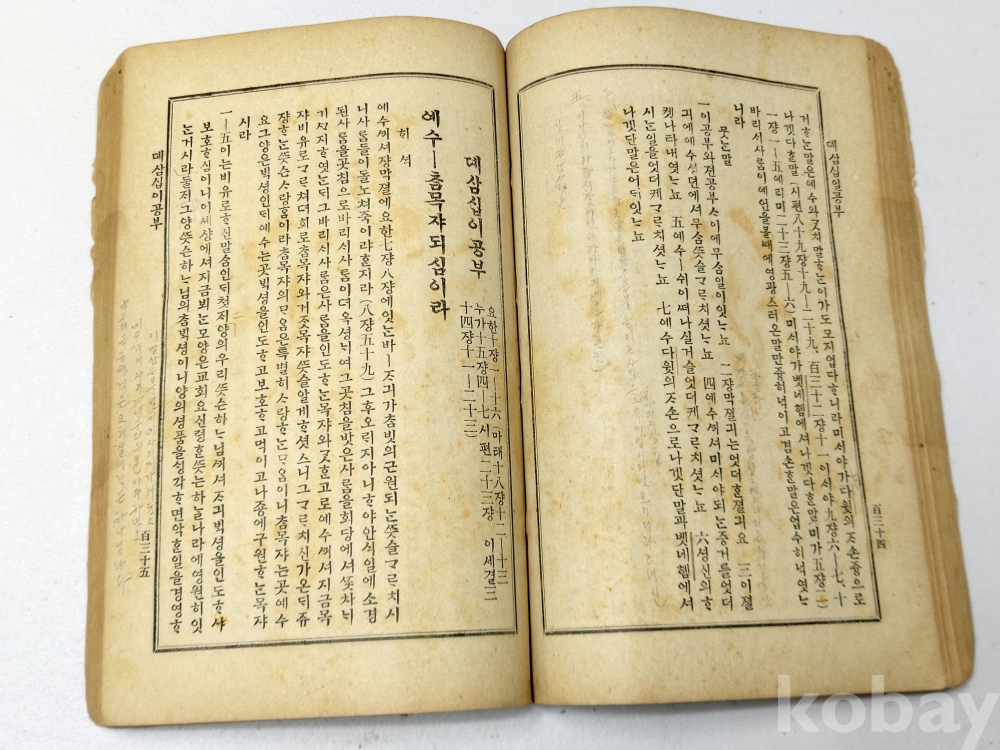 뎨삼십일공부
百三十四
거ᄒᆞᆫ말은예수와ᄀᆞᆺ치말ᄒᆞᄂᆞᆫ이가도모지업다ᄒᆞ니라미시야가다윗의ᄌᆞ손즁으로
나겟다ᄒᆞᆫ말 (시편八十九쟝十九―二十九、百三十二쟝十一이시야九쟝六―七、十
一쟝一―五예리미二十三쟝五―六) 미시야가벳네헴에셔나겟다ᄒᆞᆫ말미가五쟝二)
바리시사ᄅᆞᆷ이예언을볼때에영광스러온말만즁히녁이고겸손ᄒᆞᆫ말은업수히녁엿ᄂᆞ
니라
뭇ᄂᆞᆫ말
一이공부와젼공부ᄉᆞ이에무ᄉᆞᆷ일이잇ᄂᆞ뇨 二쟝막졀긔는엇더ᄒᆞᆫ졀긔요 三이졀
긔에예수셩뎐에셔무ᄉᆞᆷ뜻슬ᄀᆞᄅᆞ치셧ᄂᆞ뇨 四예수ᄭᅴ셔미시야되ᄂᆞᆫ증거를엇더
케나타내엿ᄂᆞ뇨 五예수―쉬이ᄯᅥ나실거슬엇더케ᄀᆞᄅᆞ치셧ᄂᆞ뇨 六셩신의ᄒᆞ
시ᄂᆞᆫ일을엇더케ᄀᆞᄅᆞ치셧ᄂᆞ뇨 七예수다윗의ᄌᆞ손으로나겟단말과벳네헴에셔
나겟단말은어ᄃᆡ잇ᄂᆞ뇨
뎨삼십이공부
요한十쟝一―十六(마태十八쟝十二―十三
누가十五쟝四―七시편二十三쟝 이세결三
十四쟝十一―二十三)
예수―춤목쟈되심이라
히셕
예수ᄭᅴ셔쟝막졀에요한七쟝八쟝에잇ᄂᆞᆫ바―ᄌᆞ긔가춤빗의근원되ᄂᆞᆫ뜻슬ᄀᆞᄅᆞ치시
니사ᄅᆞᆷ들이돌노쳐쥭이랴ᄒᆞᆫ지라 (八쟝五十九) 그후오ᄅᆡ지아니ᄒᆞ야안식일에소경
된사ᄅᆞᆷ을곳침으로바리시사ᄅᆞᆷ이뎌욱셩내여그곳침을밧은사ᄅᆞᆷ을회당에셔ᄶᅩᆺ차내
기ᄭᆞ지ᄒᆞ엿ᄂᆞᆫᄃᆡ그바리시사ᄅᆞᆷ은사ᄅᆞᆷ을인도ᄒᆞᄂᆞᆫ목쟈와ᄀᆞᆺᄒᆞᆫ고로예수ᄭᅴ셔지금목
쟈비유로ᄀᆞᄅᆞ쳐뎌희로춤목쟈와거즛목쟈뜻슬알게ᄒᆞ셧스니그ᄀᆞᄅᆞ치신가온ᄃᆡ쥬
쟝ᄒᆞᄂᆞᆫ뜻슨ᄉᆞ랑홈이라춤목쟈의ᄆᆞ음은특별히ᄉᆞ랑ᄒᆞᄂᆞᆫᄆᆞ음이니춤목쟈는곳예수
요그양은ᄇᆡᆨ셩인ᄃᆡ예수는곳ᄇᆡᆨ셩을인도ᄒᆞ고보호ᄒᆞ고먹이고나죵에구원ᄒᆞᄂᆞᆫ목쟈
시라
一―五이는비유로ᄒᆞ신말ᄉᆞᆷ인ᄃᆡ첫재양의우리뜻슨하ᄂᆞ님ᄭᅴ셔ᄌᆞ긔ᄇᆡᆨ셩을인도ᄒᆞ샤
보호ᄒᆞ심이니이셰샹에셔지금뵈ᄂᆞᆫ모양은교회요신령ᄒᆞᆫ뜻는하ᄂᆞᆯ나라에영원히잇
ᄂᆞᆫ거시라둘재그양뜻슨하ᄂᆞ님의춤ᄇᆡᆨ셩이니양의셩품을ᄉᆡᆼ각ᄒᆞ면악ᄒᆞᆫ일을경영ᄒᆞ
뎨삼십이공부
百三十五
kobay